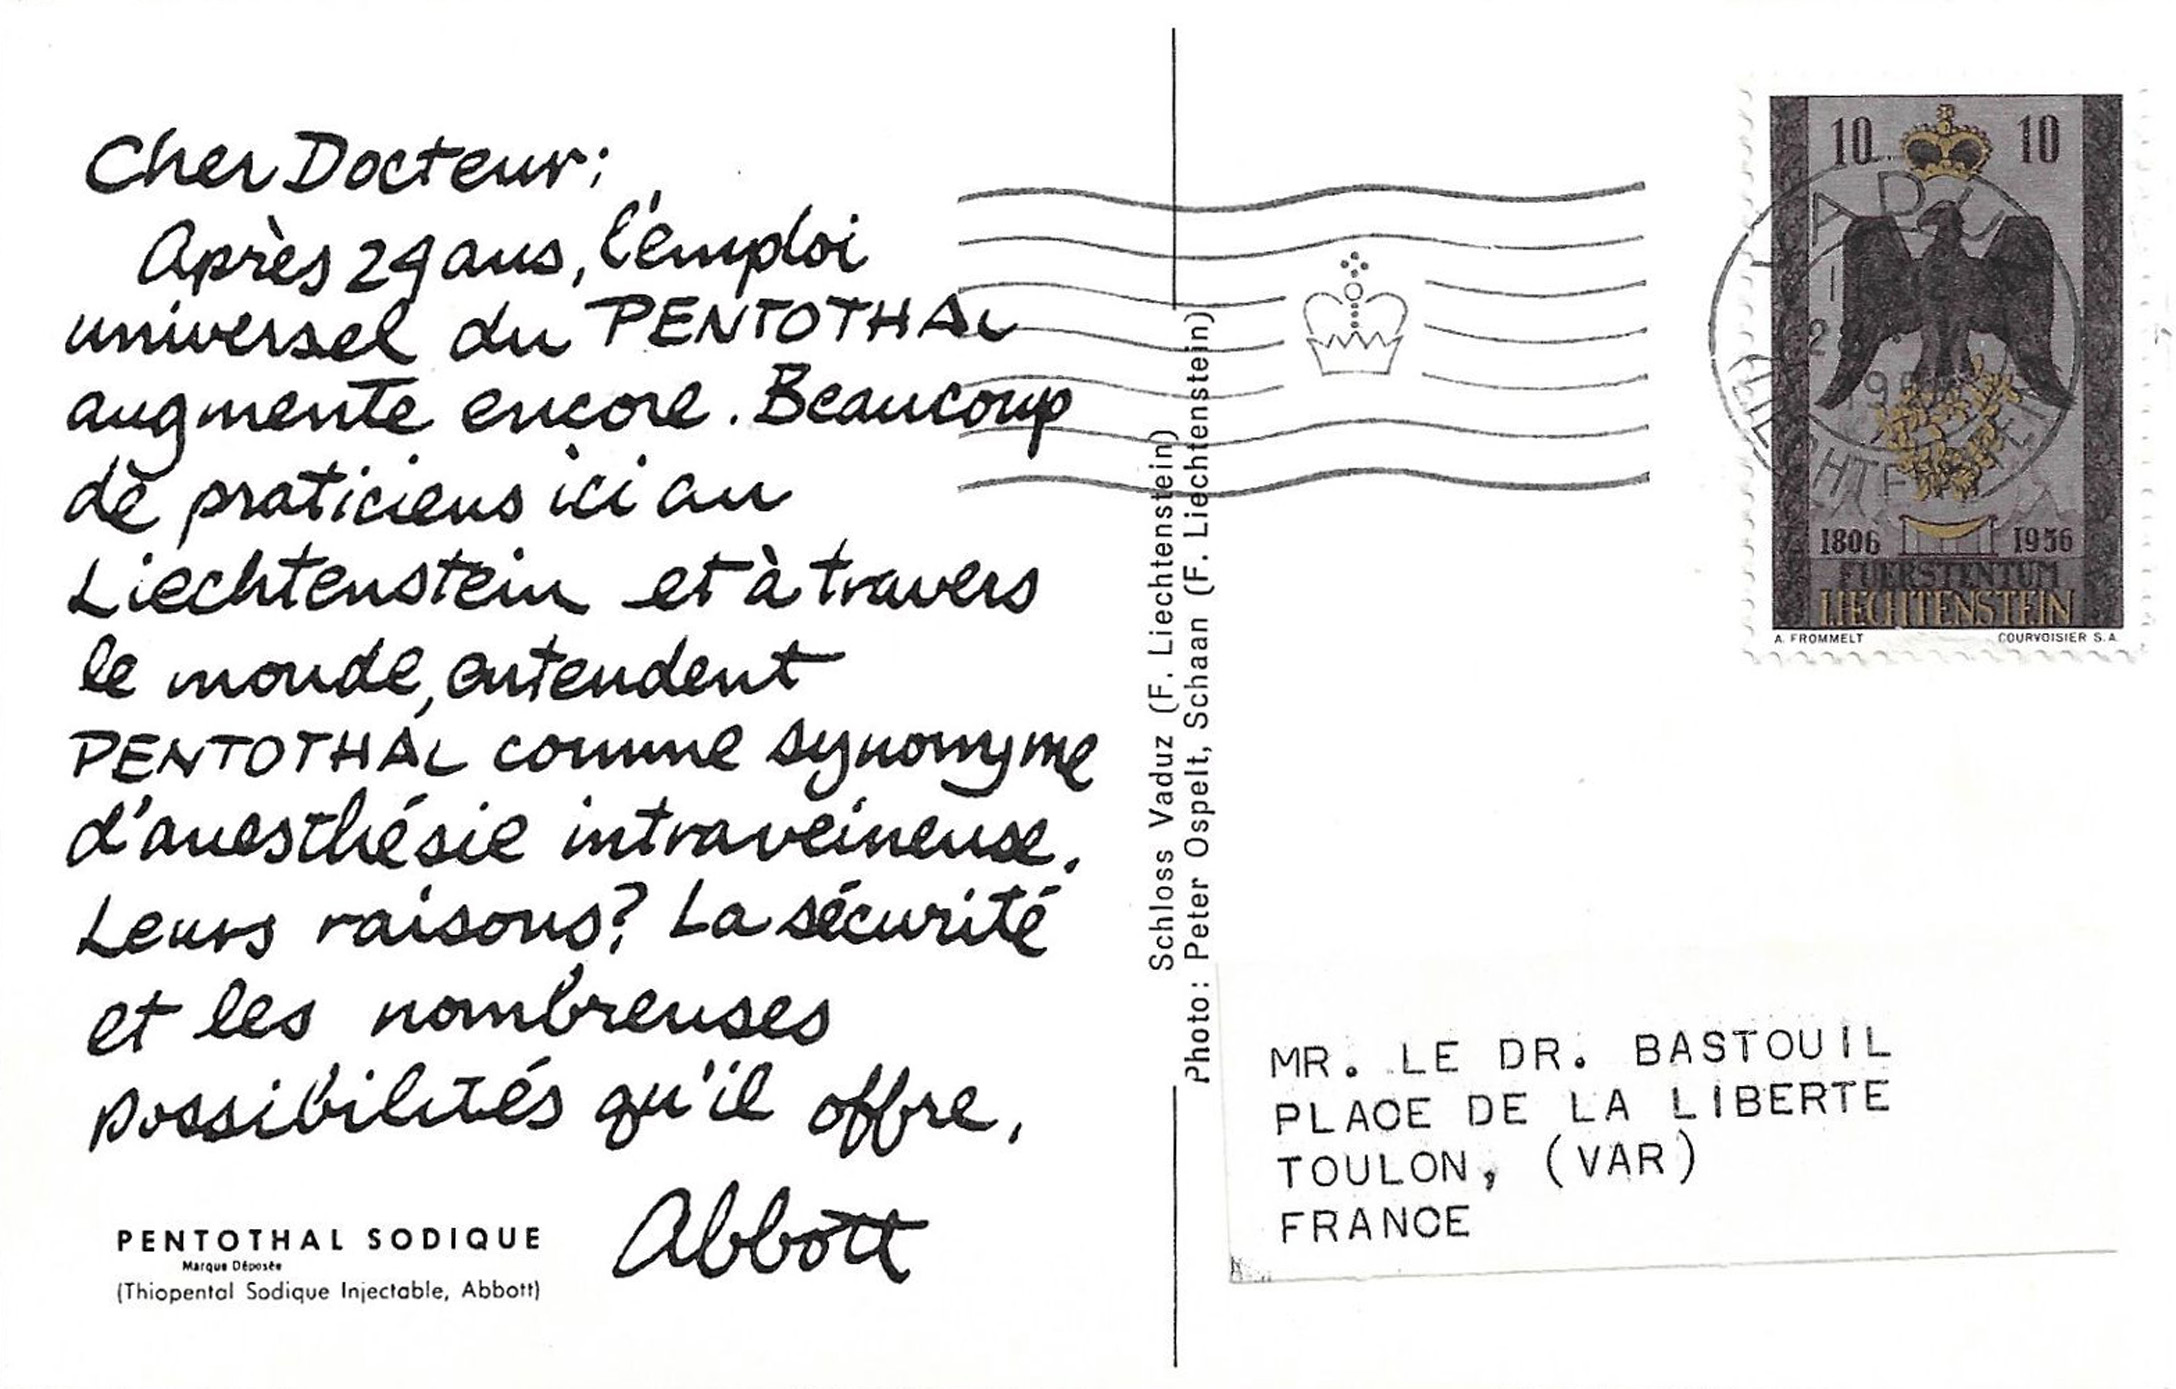 Cher Docteur:
Après 24 ans, l'emploi
universel du PENTOTHAL
augmente encore. Beaucoup
de praticiens ici au
Liechtenstein et à travers
le monde, entendent
PENTOTHAL comme synonyme
d'anesthésie intraveineuse.
Leurs raisons? La sécurité
et les nombreuses
possibilités qu'il offre.
Abbott
PENTOTHAL SODIQUE
Marque Déposée
(Thiopental Sodique Injectable, Abbott)
Schloss Vaduz (F. Liechtenstein)
Photo: Peter Ospelt, Schaan (F. Liechtenstein)
10 10
1806 1956
FUERSTENTUM
LIECHTENSTEIN
A. FROMMELT COURVOISIER S.A.
MR. LE DR. BASTOUIL
PLACE DE LA LIBERTE
TOULON, (VAR)
FRANCE